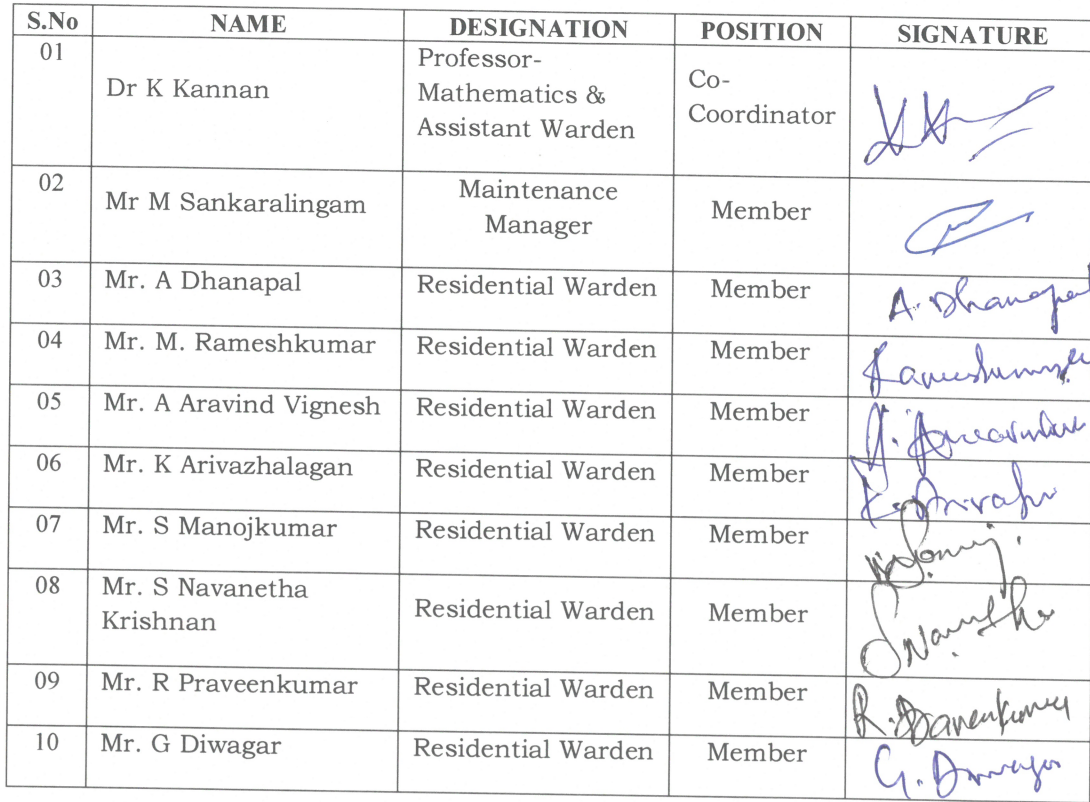 S.No NAME DESIGNATION POSITION SIGNATURE
01 Dr K Kannan Professor-
Mathematics &
Assistant Warden
Co-
Coordinator
02 Mr M Sankaralingam Maintenance
Manager
Member
03 Mr. A Dhanapal Residential Warden Member A. Dhanapal
04 Mr. M. Rameshkumar Residential Warden Member
05 Mr. A Aravind Vignesh Residential Warden Member
06 Mr. K Arivazhalagan Residential Warden Member
07 Mr. S Manojkumar Residential Warden Member
08 Mr. S Navanetha
Krishnan
Residential Warden Member
09 Mr. R Praveenkumar Residential Warden Member
10 Mr. G Diwagar Residential Warden Member